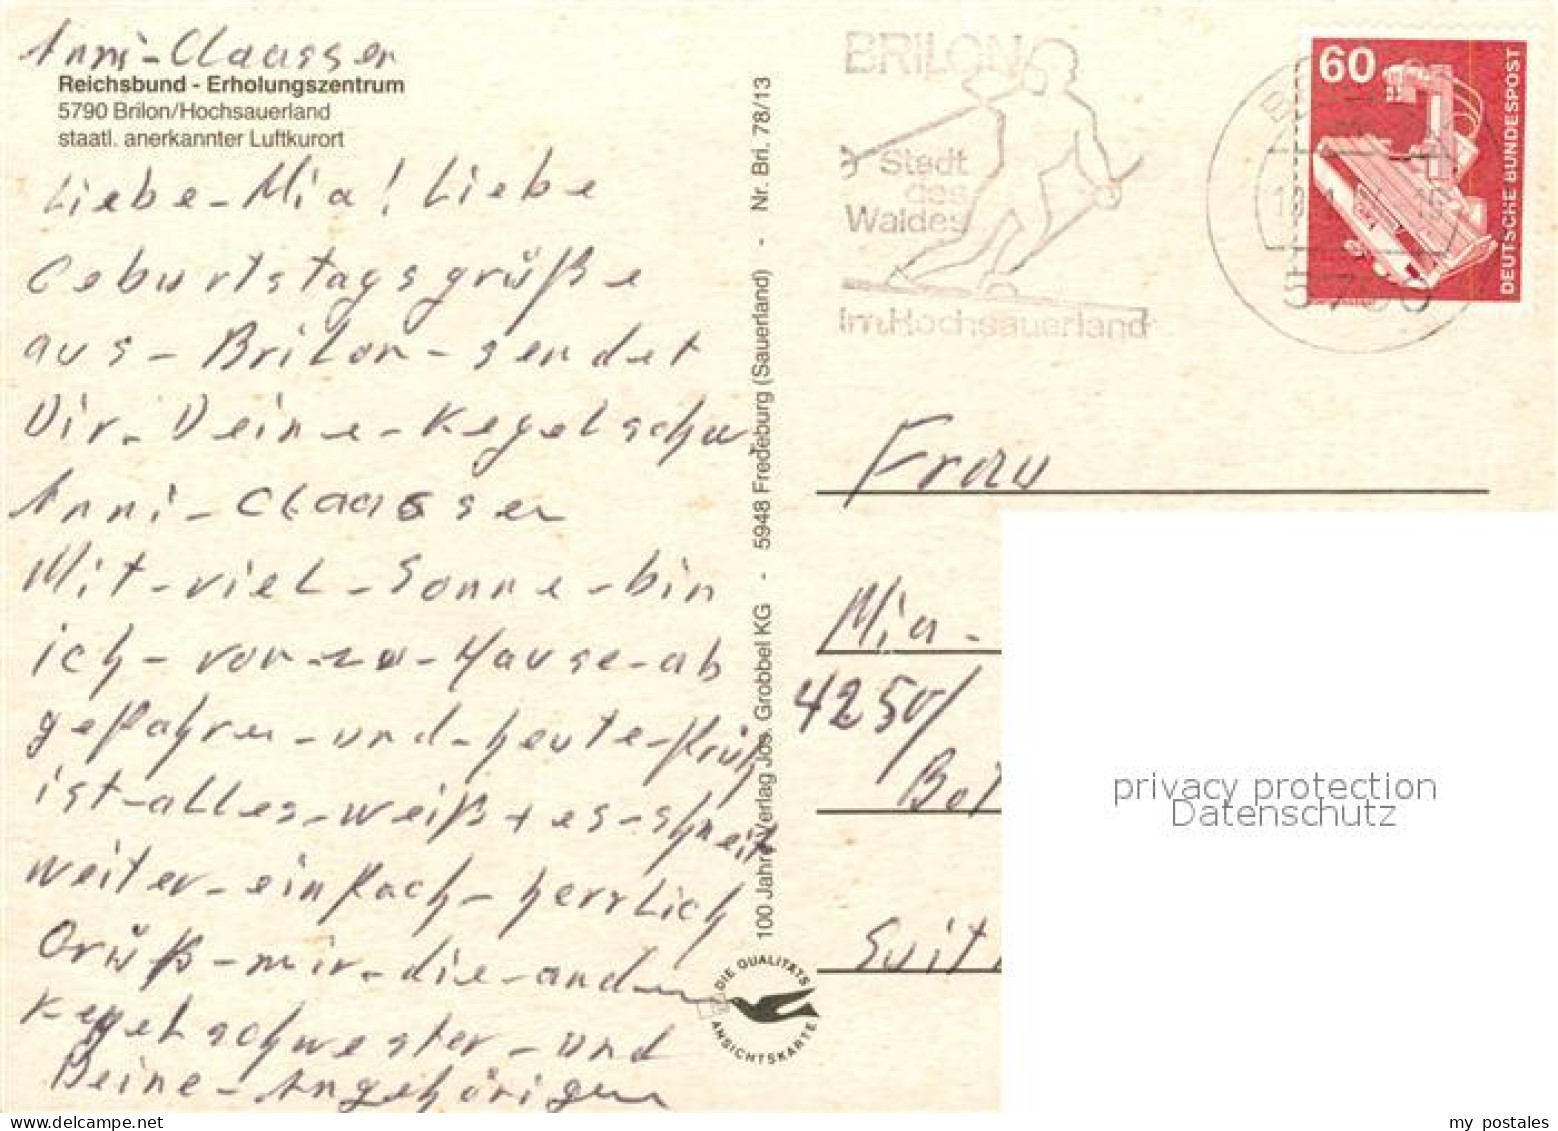 Anni-Claassen
Reichsbund - Erholungszentrum
5790 Brilon/Hochsauerland
staatl. anerkannter Luftkurort
Liebe-Mia! Liebe
Geburtstagsgrüße
aus-Brilon-sendet
Dir-Deine-Kegelschw
Anni-Claassen
Mit-viel-Sonne-bin
ich-von-zu-Hause-ab
gefahren-und-heute-früh
ist-alles-weiß+es-schneit
weiter-einfach-herrlich
Grüß-mir-die-andern
Kegelschwester-und
Deine-Angehörigen
100 Jahre Verlag Jos. Grobbel KG - 5948 Fredeburg (Sauerland) - Nr. Bri. 78/13
DIE QUALITÄTS
ANSICHTSKARTE
BRILON
Stadt
des
Waldes
Im Hochsauerland
5790
60
DEUTSCHE BUNDESPOST
Frau
Mia-
4250/
Bot
privacy protection
Datenschutz
my postales